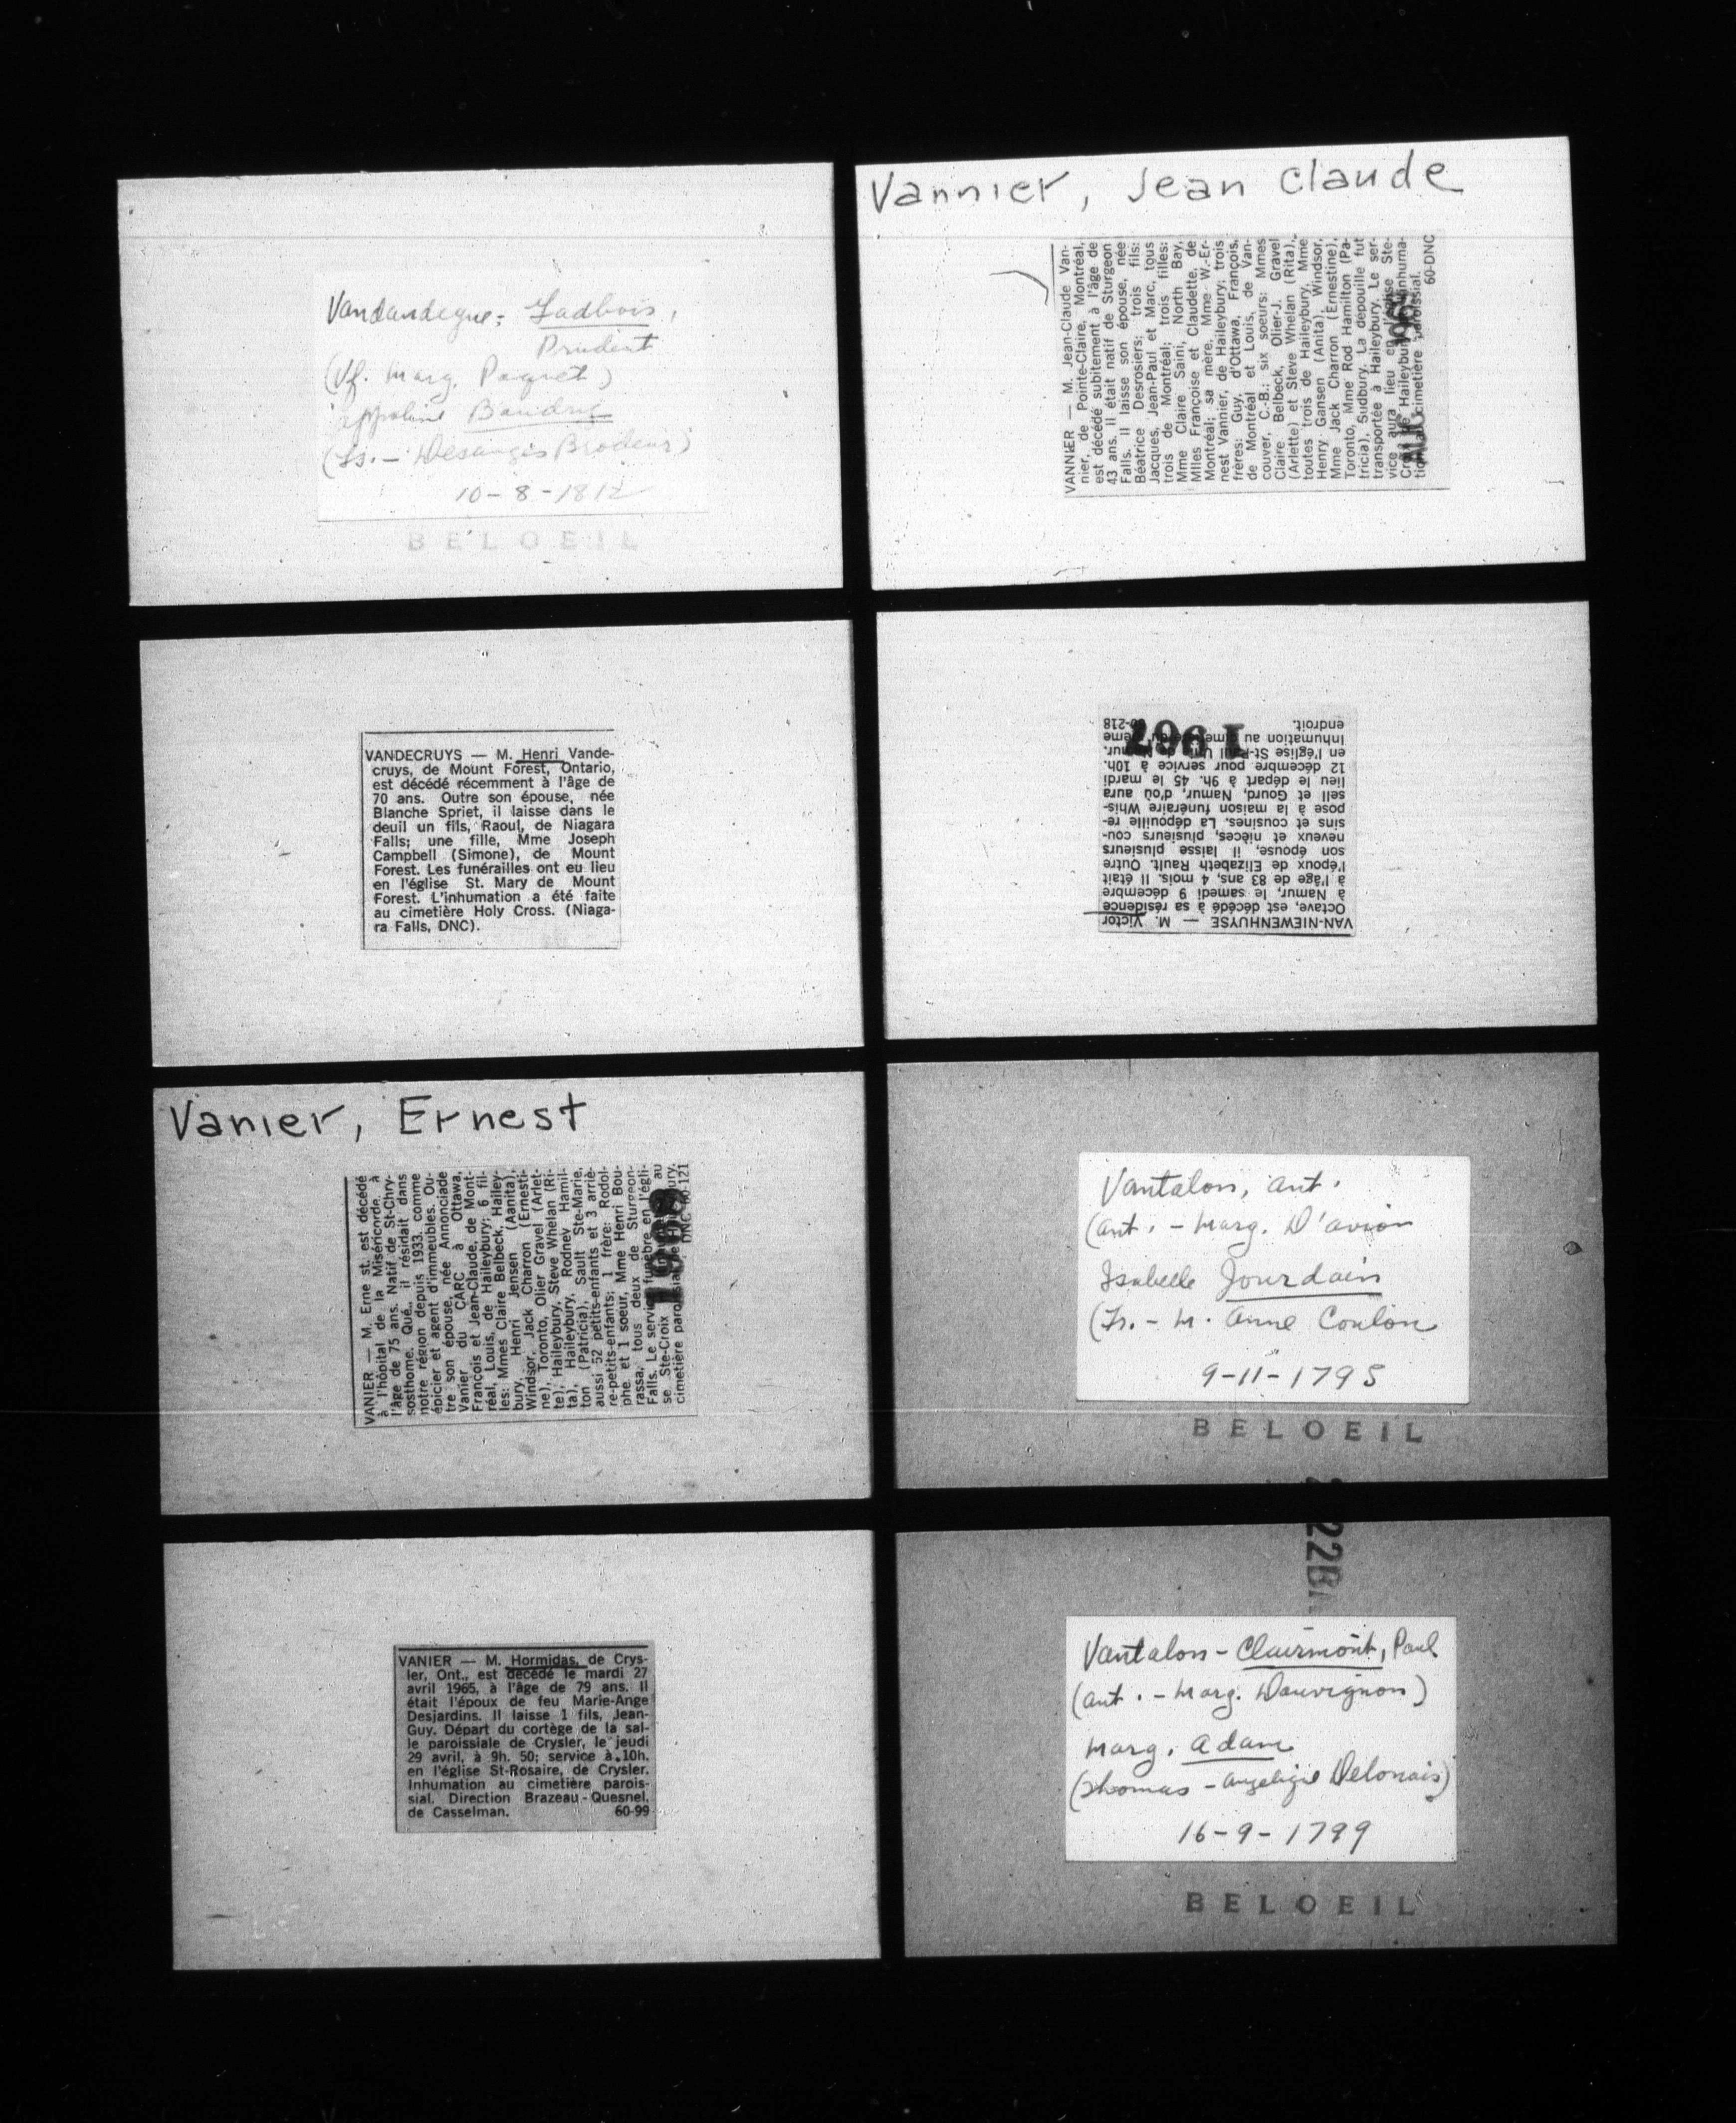 Vandandegue - Gadbois,
Prudent
(Vf. Marg. Paquet)
Appoline Baudry
(Fs. - Desanges Brodeur)
10-8-1812
BELOEIL
VANDECRUYS — M. Henri Vande-
cruys, de Mount Forest, Ontario,
est décédé récemment à l'âge de
70 ans. Outre son épouse, née
Blanche Spriet, il laisse dans le
deuil un fils, Raoul, de Niagara
Falls; une fille, Mme Joseph
Campbell (Simone), de Mount
Forest. Les funérailles ont eu lieu
en l'église St. Mary de Mount
Forest. L'inhumation a été faite
au cimetière Holy Cross. (Niaga-
ra Falls, DNC).
Vanier, Ernest
VANIER — M. Erne st, est décédé
à l'hôpital de la Miséricorde, à
l'âge de 75 ans. Natif de St-Chry-
sosthome, Qué., il résidait dans
notre région depuis 1933, comme
épicier et agent d'immeubles. Ou-
tre son épouse, née Annonciade
Vanier, du CARC à Ottawa,
François et Jean-Claude, de Mont-
réal, Louis, de Haileybury; 6 fil-
les: Mmes Claire Belbeck, Hailey-
bury, Henri Jensen (Aanita),
Windsor, Jack Charron (Ernesti-
ne), Toronto, Olier Gravel (Arlet-
te), Haileybury, Steve Whelan (Ri-
ta), Haileybury, Rodney Hamil-
ton (Patricia), Sault Ste-Marie,
aussi 52 petits-enfants et 3 arriè-
re-petits-enfants; 1 frère: Rodol-
phe et 1 soeur, Mme Henri Bou-
rassa, tous deux de Sturgeon-
Falls. Le service funèbre en l'égli-
se Ste-Croix au
cimetière paroissial
DNC 60-121
VANIER — M. Hormidas, de Crys-
ler, Ont., est décédé le mardi 27
avril 1965, à l'âge de 79 ans. Il
était l'époux de feu Marie-Ange
Desjardins. Il laisse 1 fils, Jean-
Guy. Départ du cortège de la sal-
le paroissiale de Crysler, le jeudi
29 avril, à 9h. 50; service à 10h.
en l'église St-Rosaire, de Crysler.
Inhumation au cimetière parois-
sial. Direction Brazeau-Quesnel,
de Casselman. 60-99
Vannier, Jean Claude
VANNIER — M. Jean-Claude Van-
nier, de Pointe-Claire, Montréal,
est décédé subitement à l'âge de
43 ans. Il était natif de Sturgeon
Falls. Il laisse son épouse, née
Béatrice Desrosiers; trois fils:
Jacques, Jean-Paul et Marc, tous
trois de Montréal; trois filles:
Mme Claire Saini, North Bay,
Mlles Françoise et Claudette, de
Montréal; sa mère, Mme W.-Er-
nest Vannier, de Haileybury; trois
frères: Guy, d'Ottawa, François,
de Montréal et Louis, de Van-
couver, C.-B.; six soeurs: Mmes
Claire Belbeck, Olier-J. Gravel
(Arlette) et Steve Whelan (Rita),
toutes trois de Haileybury, Mme
Henry Gansen (Anita), Windsor,
Mme Jack Charron (Ernestine),
Toronto, Mme Rod Hamilton (Pa-
tricia), Sudbury. La dépouille fut
transportée à Haileybury. Le ser-
vice aura lieu en l'église Ste-
Croix de Haileybury inhuma-
tion au cimetière paroissial.
60-DNC
AUG
VAN-NIEWENHUYSE — M. Victor
Octave, est décédé à sa résidence
à Namur, le samedi 9 décembre
à l'âge de 83 ans, 4 mois. Il était
l'époux de Elizabeth Rault. Outre
son épouse, il laisse plusieurs
neveux et nièces, plusieurs cou-
sins et cousines. La dépouille re-
pose à la maison funéraire Whis-
sell et Gourd, Namur, d'où aura
lieu le départ à 9h. 45 le mardi
12 décembre pour service à 10h.
en l'église St-Paul de Namur.
Inhumation au cimetière du même
endroit. 60-218
1967
Vantalon, Ant.
(Ant. - Marg. D'avion
Isabelle Jourdain
(Fs. - M. Anne Coulon
9-11-1795
BELOEIL
Vantalon - Clairmont, Paul
(Ant. - Marg. Dauvignon)
Marg. Adam
(Thomas - Angelique Delonais)
16-9-1799
BELOEIL